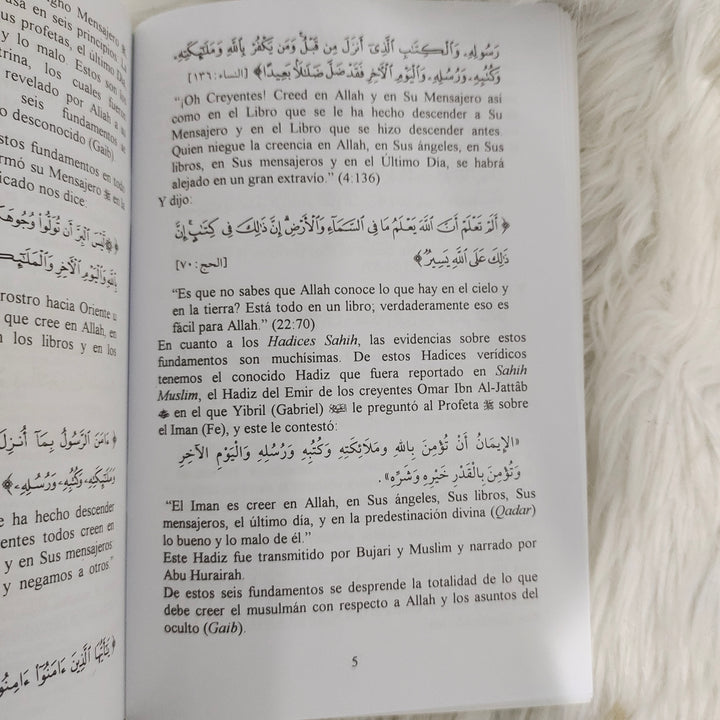 gno Mensajero
asa en seis principios. La
sus profetas, el último Día
y lo malo. Estos son los
trina, los cuales fueron
revelado por Allah a un
seis fundamentos un
o desconocido (Gaib)
stos fundamentos en todo
rmó su Mensajero ﷺ en la
icado nos dice:
﴿ ۞لَّيْسَ ٱلْبِرَّ أَن تُوَلُّوا۟ وُجُوهَكُمْ
بِٱللَّهِ وَٱلْيَوْمِ ٱلْءَاخِرِ وَٱلْمَلَٰٓئِكَةِ
rostro hacia Oriente u
que cree en Allah, en
n los libros y en los
﴿ ءَامَنَ ٱلرَّسُولُ بِمَآ أُنزِلَ
وَمَلَٰٓئِكَتِهِۦ وَكُتُبِهِۦ وَرُسُلِهِۦ ﴾
e ha hecho descender
entes todos creen en
y en Sus mensajeros:
y negamos a otros."
﴿ يَٰٓأَيُّهَا ٱلَّذِينَ ءَامَنُوٓا۟ ءَامِنُوا۟
رَسُولِهِۦ وَٱلْكِتَٰبِ ٱلَّذِىٓ أَنزَلَ مِن قَبْلُ ۚ وَمَن يَكْفُرْ بِٱللَّهِ وَمَلَٰٓئِكَتِهِۦ
وَكُتُبِهِۦ وَرُسُلِهِۦ وَٱلْيَوْمِ ٱلْءَاخِرِ فَقَدْ ضَلَّ ضَلَٰلًۢا بَعِيدًا ﴾ [النساء:١٣٦]
“¡Oh Creyentes! Creed en Allah y en Su Mensajero así
como en el Libro que se le ha hecho descender a Su
Mensajero y en el Libro que se hizo descender antes.
Quien niegue la creencia en Allah, en Sus ángeles, en Sus
libros, en Sus mensajeros y en el Último Día, se habrá
alejado en un gran extravío.” (4:136)
Y dijo:
﴿ أَلَمْ تَعْلَمْ أَنَّ ٱللَّهَ يَعْلَمُ مَا فِى ٱلسَّمَآءِ وَٱلْأَرْضِ ۗ إِنَّ ذَٰلِكَ فِى كِتَٰبٍ ۚ إِنَّ
ذَٰلِكَ عَلَى ٱللَّهِ يَسِيرٌ ﴾ [الحج:٧٠]
“Es que no sabes que Allah conoce lo que hay en el cielo y
en la tierra? Está todo en un libro; verdaderamente eso es
fácil para Allah.” (22:70)
En cuanto a los Hadices Sahih, las evidencias sobre estos
fundamentos son muchísimas. De estos Hadices verídicos
tenemos el conocido Hadiz que fuera reportado en Sahih
Muslim, el Hadiz del Emir de los creyentes Omar Ibn Al-Jattâb
en el que Yibril (Gabriel) le preguntó al Profeta ﷺ sobre
el Iman (Fe), y este le contestó:
«الإِيمَانُ أَنْ تُؤْمِنَ بِاللهِ وَمَلَائِكَتِهِ وَكُتُبِهِ وَرُسُلِهِ وَالْيَوْمِ الآخِرِ
وَتُؤْمِنَ بِالْقَدَرِ خَيْرِهِ وَشَرِّهِ».
“El Iman es creer en Allah, en Sus ángeles, Sus libros, Sus
mensajeros, el último día, y en la predestinación divina (Qadar)
lo bueno y lo malo de él.”
Este Hadiz fue transmitido por Bujari y Muslim y narrado por
Abu Hurairah.
De estos seis fundamentos se desprende la totalidad de lo que
debe creer el musulmán con respecto a Allah y los asuntos del
oculto (Gaib).
5